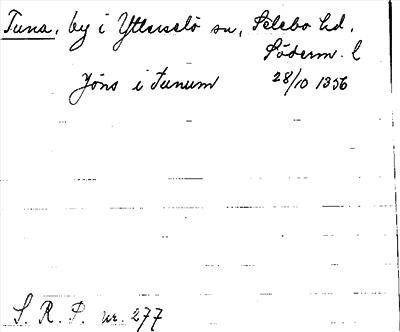 Tuna, by i Ytterselö sn, Selebo hd,
Söderm. l
Jöns i Tunum 28/10 1356
S. R. P. nr. 277